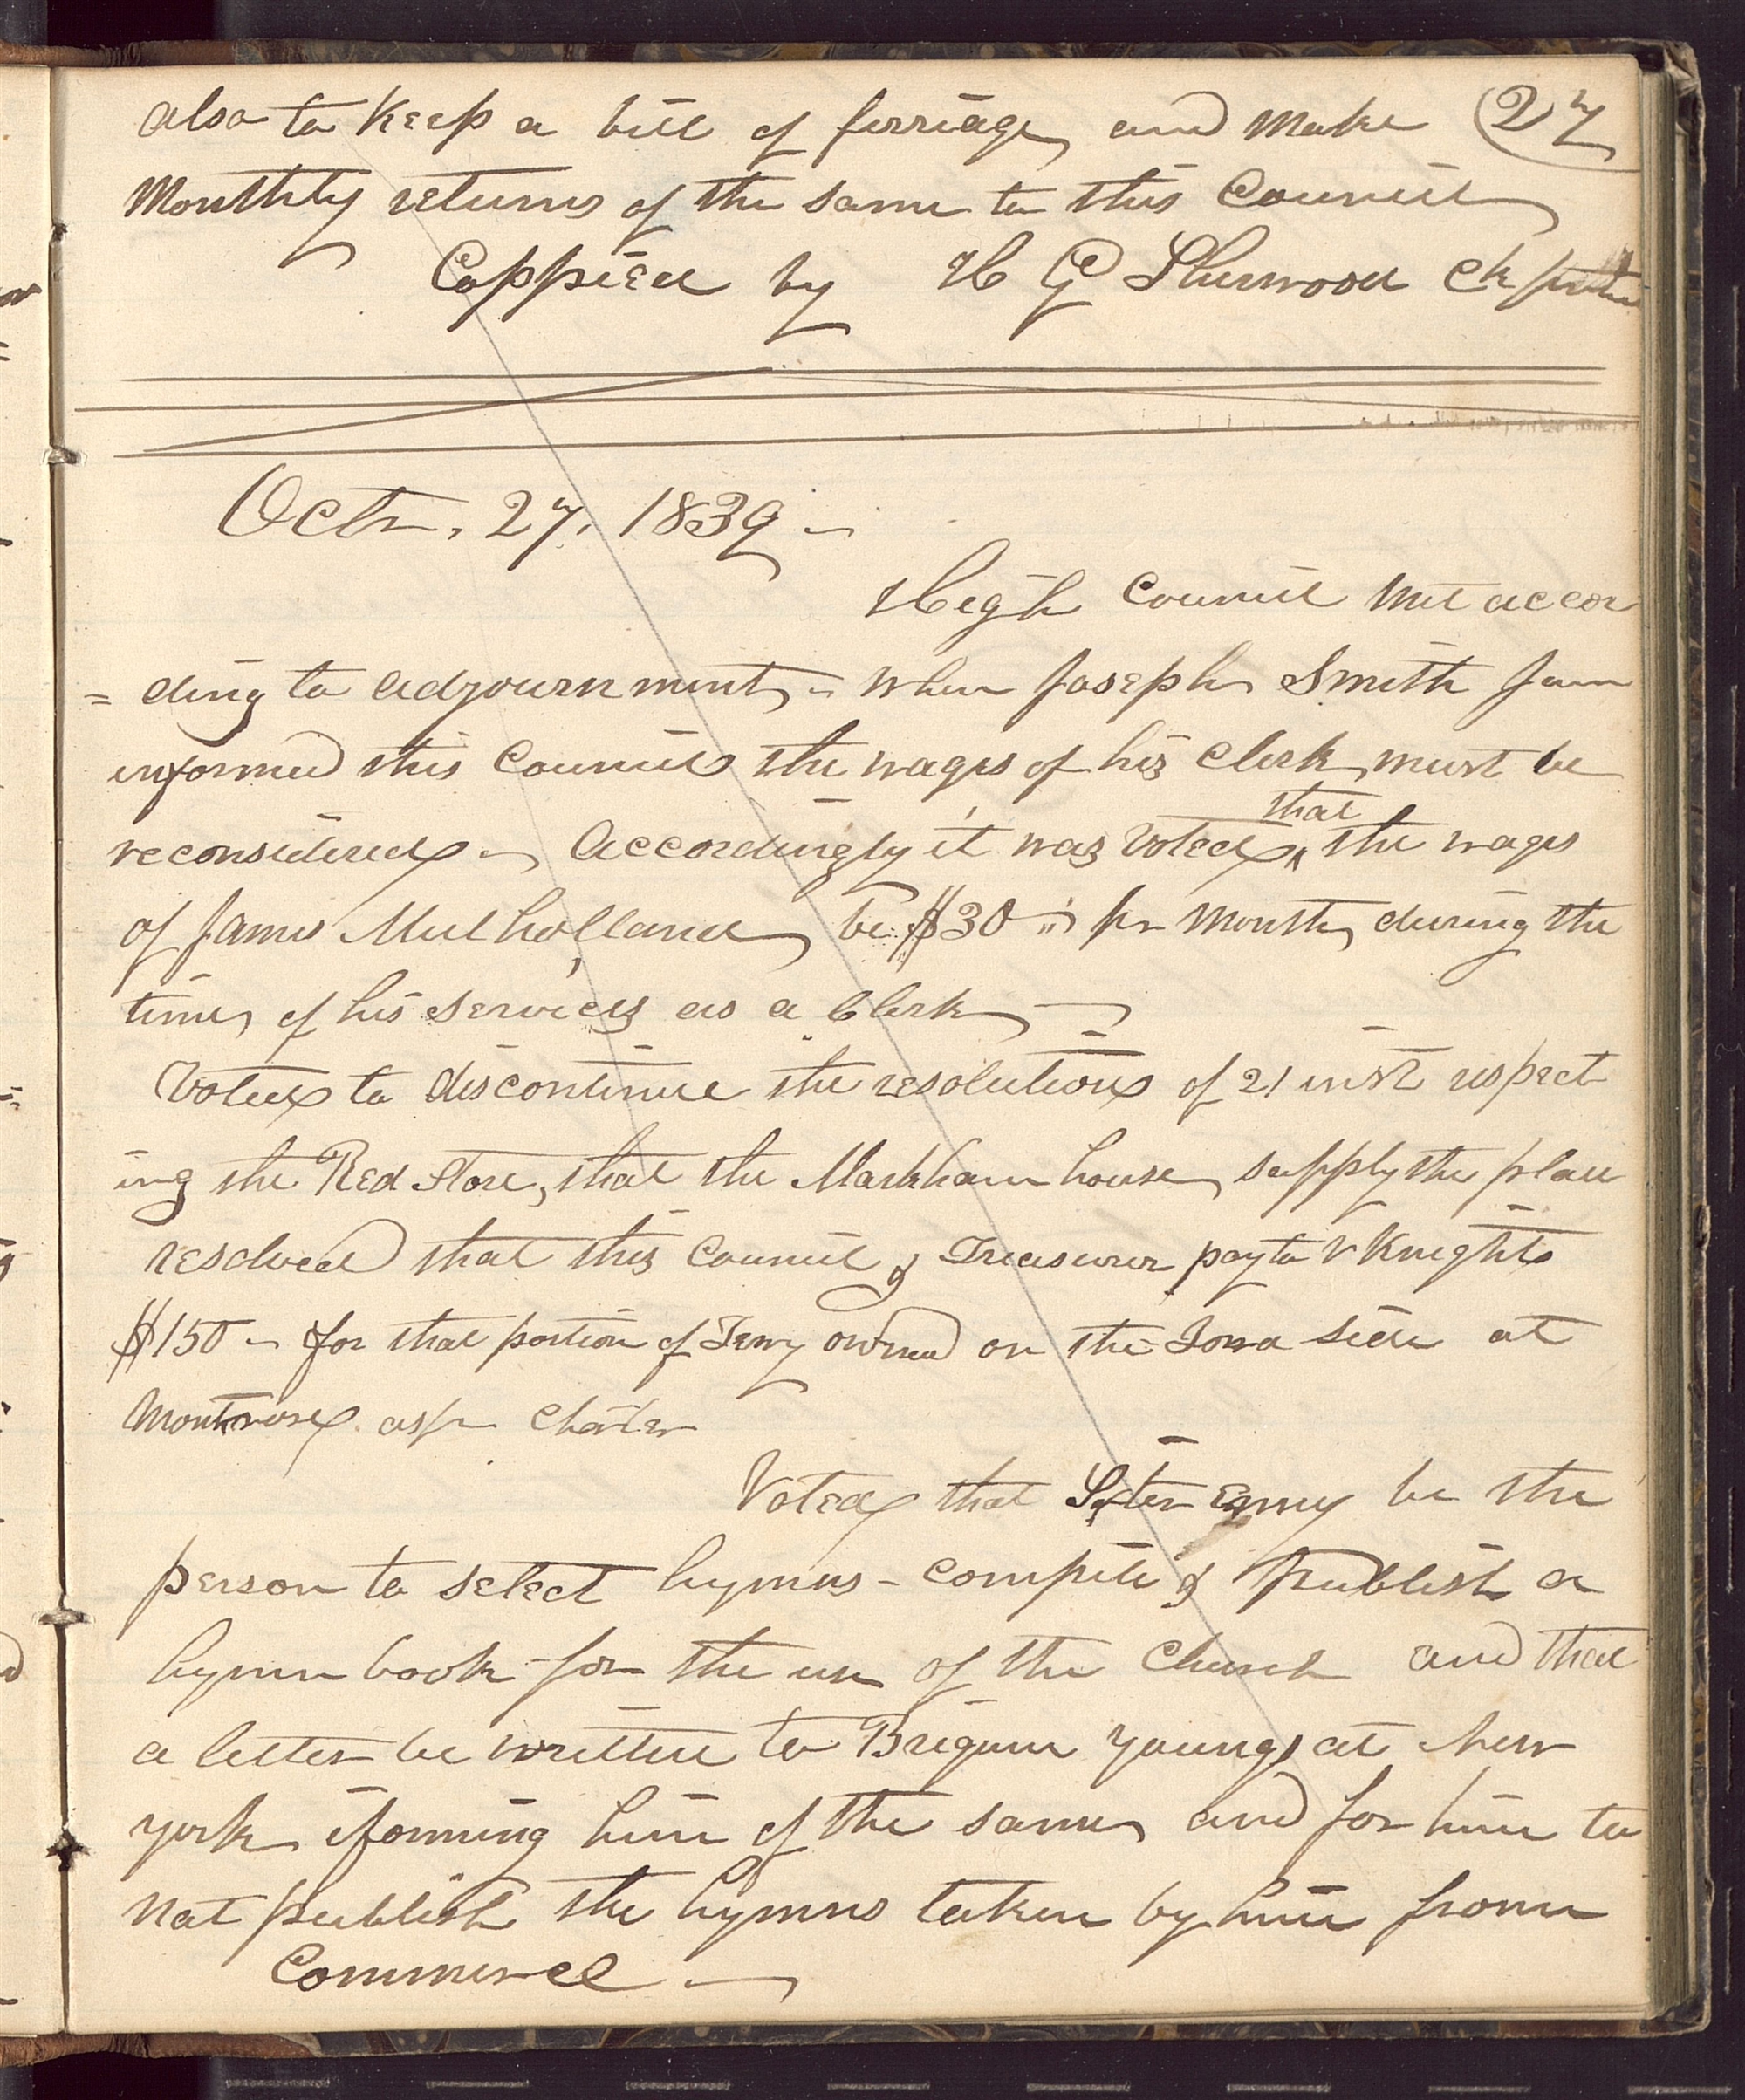 also to keep a bill of ferriage and make 27
Monthly returns of the same to this Council
Coppied by H G Sherwood Clk
Octr. 27. 1839 –
High Council met accor
= ding to adjournment – when Joseph Smith Jun
informed this Council the wages of his Clerk must be
reconsidered – Accordingly it was voted ^that the wages
of James Mulholland be $30 – pr Month during the
time of his services as a Clerk –
Voted to discontinue the resolutions of 21 inst respect
ing the Red Store, that the Markham house supply the place
resolved that this Council & Treasurer pay to V Knights
$150 – for that portion of Ferry owned on the Iowa side at
Montrose as pr Charter
Voted that Sister Emmy be the
person to select hymns – compile & publish a
hymn book for the use of the Church and that
a letter be written to Brigum Young at New
york iforming him of the same and for him to
not publish the hymns taken by him from
Commerce –